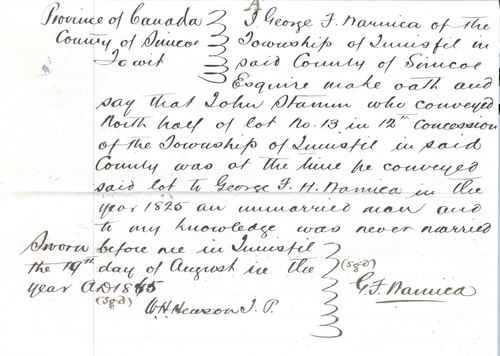 A
Province of Canada
County of Simcoe
To wit
I George F. Warnica of the
Township of Innisfil in
said County of Simcoe
Esquire make oath and
say that John Stamm who conveyed
North half of lot No. 13 in 12th Concession
of the Township of Innisfil in said
County was at the time he conveyed
said lot to George F. H. Warnica in the
year 1825 an unmarried man and
to my knowledge was never married
Sworn before me in Innisfil
the 19th day of August in the
year AD 1865
(sgd)
W. H. Hewson J. P.
(sgd)
G. F. Warnica